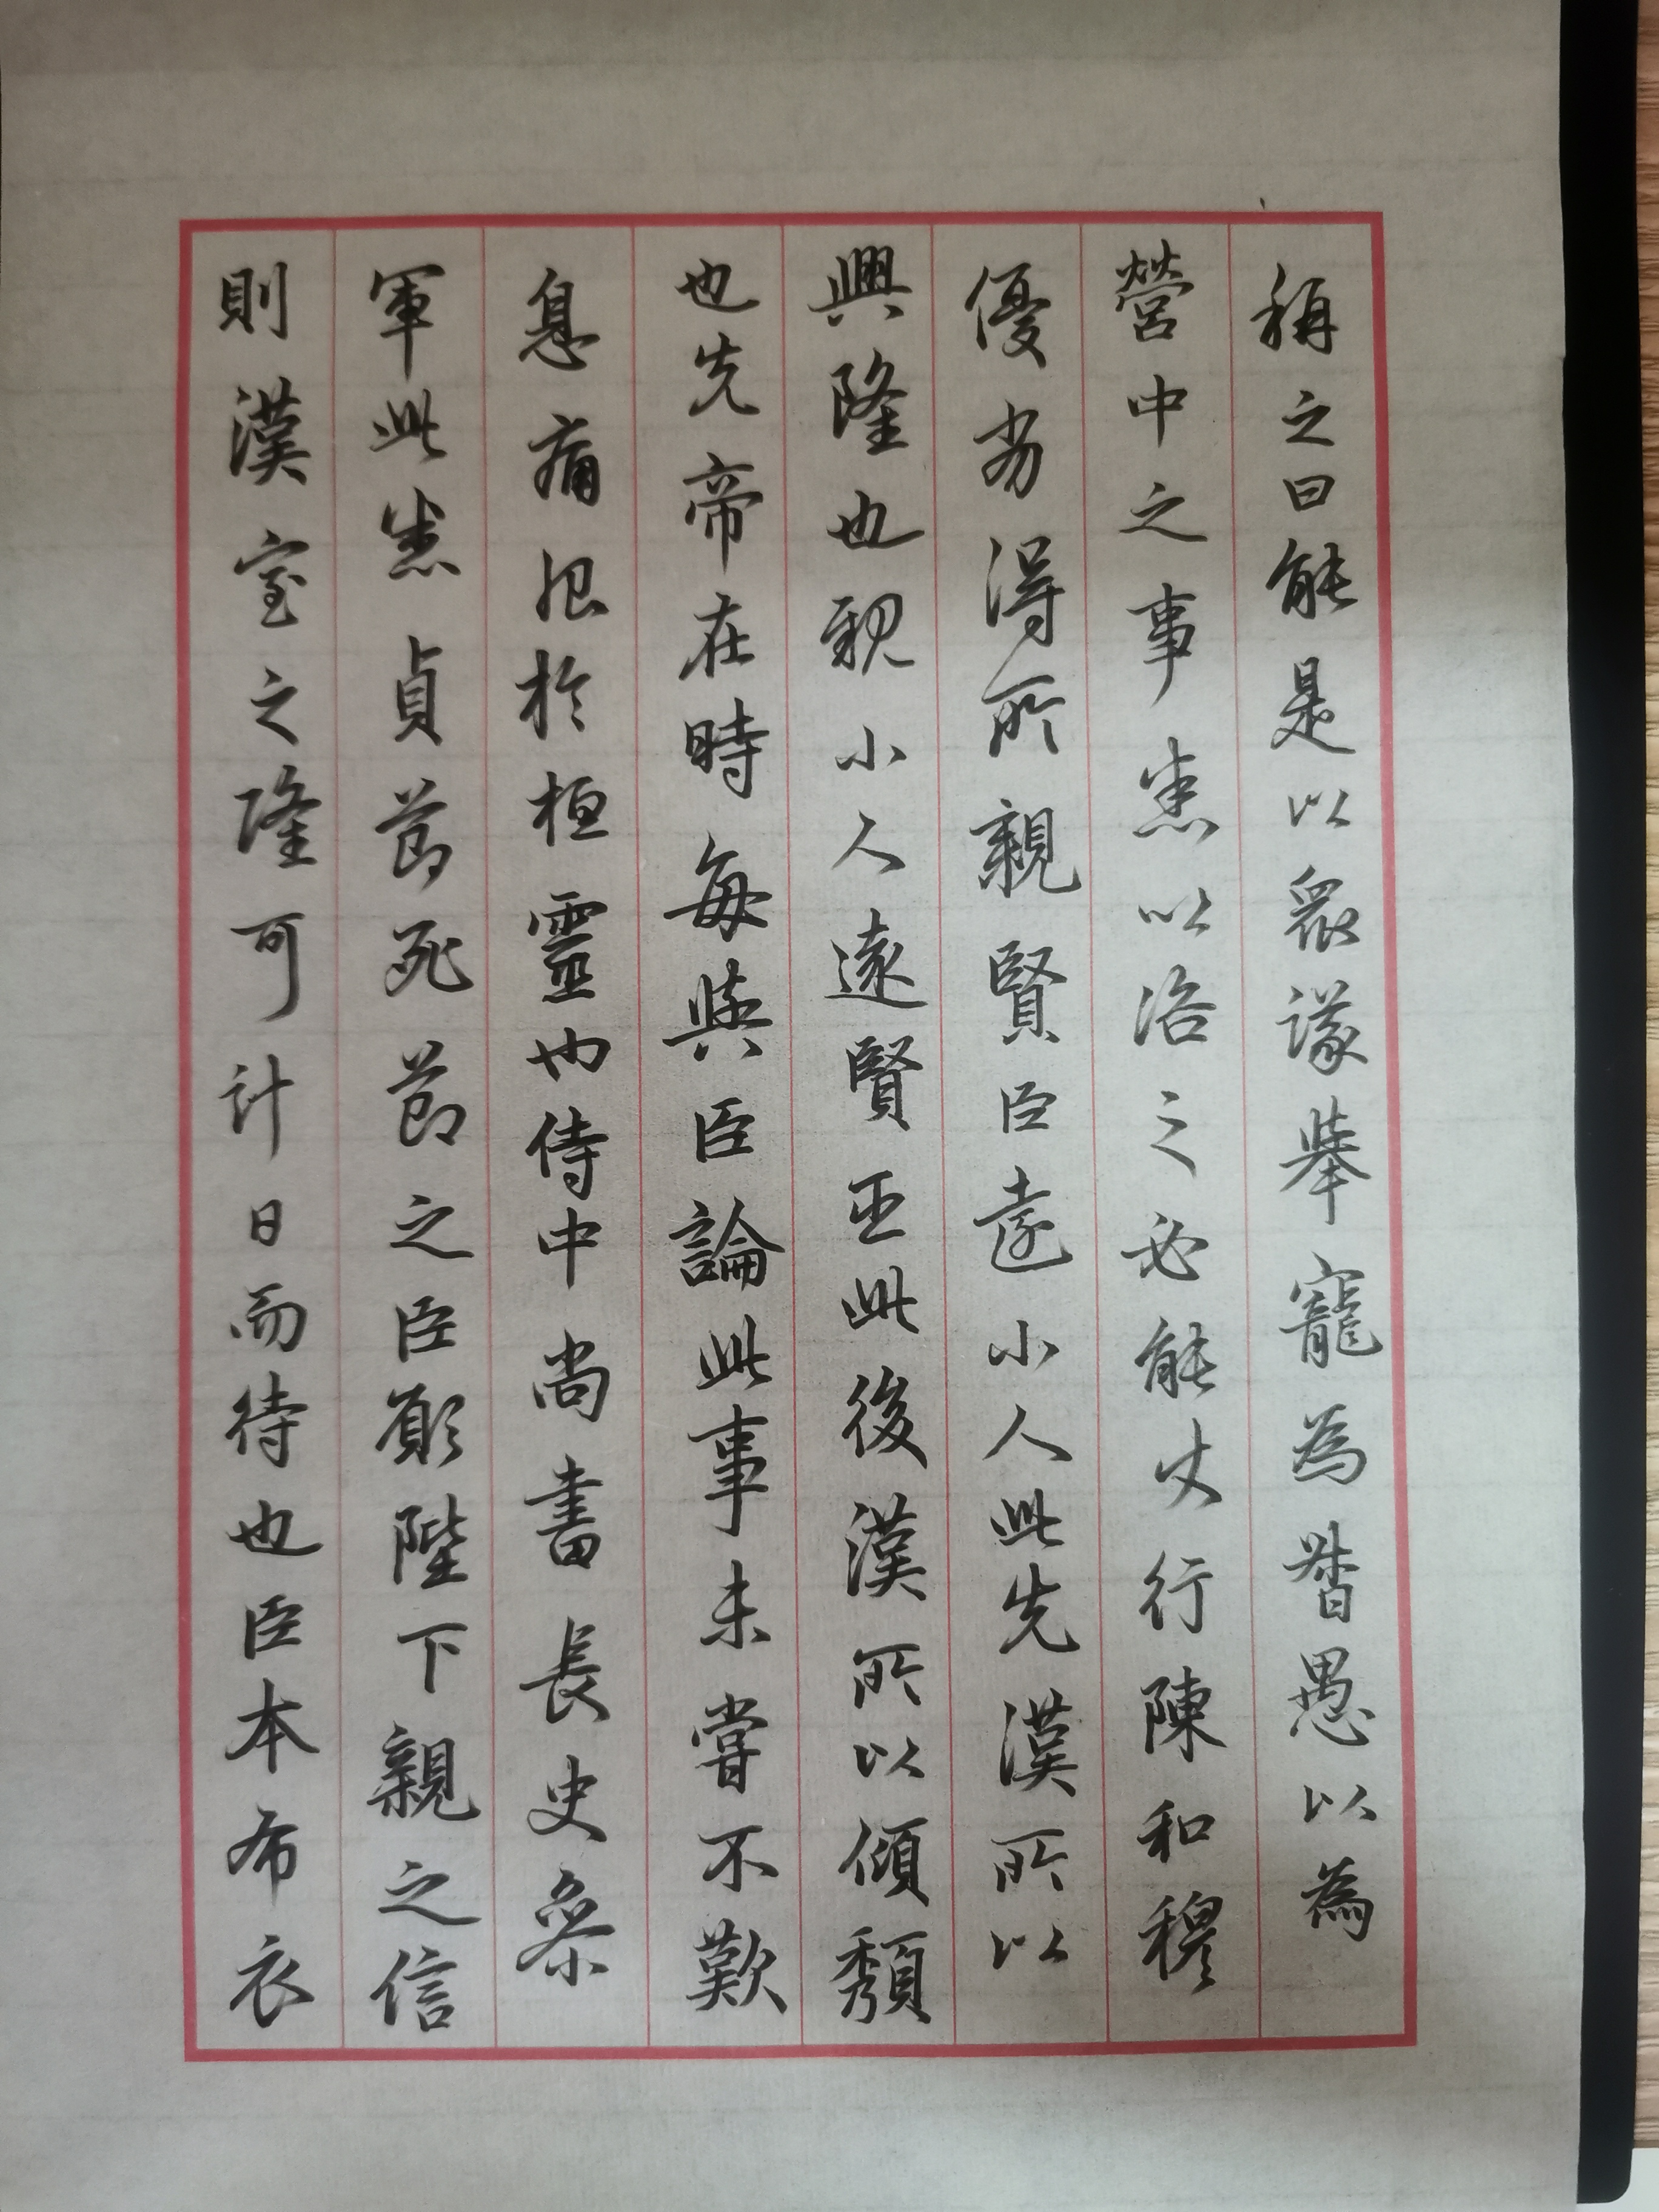 稱之曰能是以眾議舉寵為督愚以為
營中之事悉以洛之必能使行陳和穆
優劣得所親賢臣遠小人此先漢所以
興隆也親小人遠賢臣此後漢所以傾頹
也先帝在時每與臣論此事未嘗不歎
息痛恨於桓靈也侍中尚書長史參
軍此悉貞節死節之臣願陛下親之信
則漢室之隆可計日而待也臣本布衣